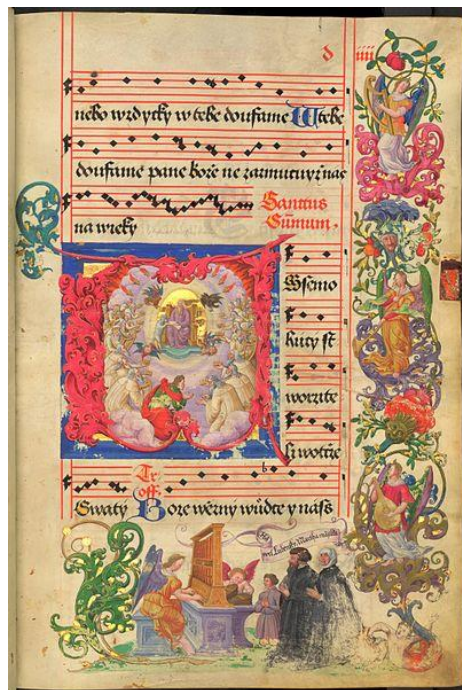 d iiii
nebo wzdycky w tebe doufame W tebe
doufame pane boze ne zarmucuy nas
na wieky
Sanctus
Sūmum.
Wssemo
hucy st
worzite
li wotcze
Tr
off.
Swaty Boze wěrny wůdce y nass